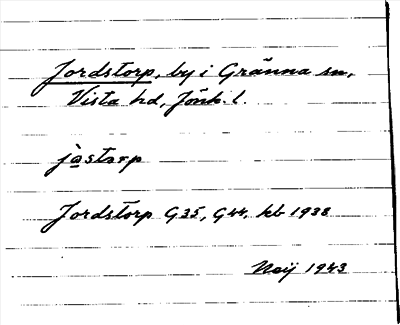 Jordstorp, by i Gränna sn,
Vista hd, Jönk. l.
jàstarp
Jordstorp G35, G44, kb 1938
Neij 1943